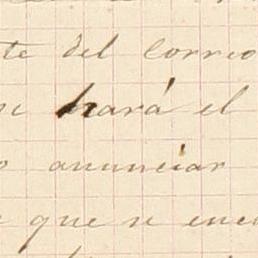 te del correo
hará el
anunciar
que se